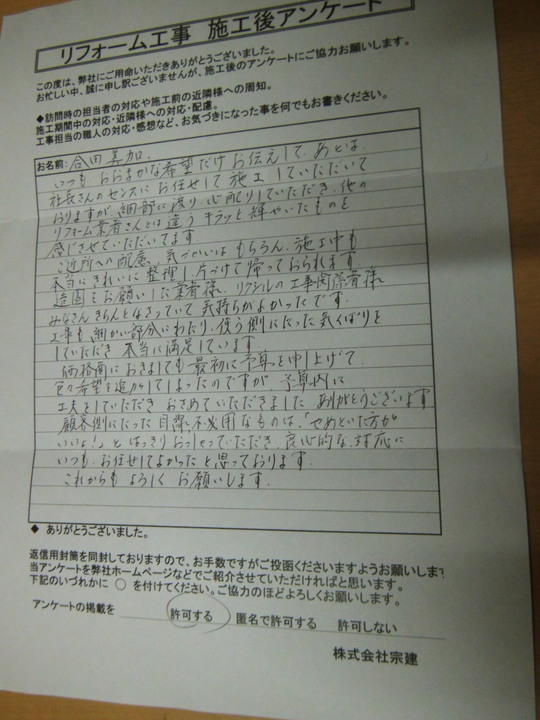 リフォーム工事 施工後アンケート
この度は、弊社にご用命いただきありがとうございました。
お忙しい中、誠に申し訳ございませんが、施工後のアンケートにご協力お願いします。
◆訪問時の担当者の対応や施工前の近隣様への周知。
施工期間中の対応・近隣様への対応・配慮。
工事担当の職人の対応・感想など、お気づきになった事を何でもお書きください。
お名前: 合田美加
いつも おおまかな希望だけ お伝えして、あとは
社長さんのセンスに お任せして 施工していただいて
おりますが、細部に渡り、心配りしていただき、他の
リフォーム業者さんとは違う キラッと輝やいたものを
感じさせていただいてます。
ご近所への配慮、気づかいは もちろん、施工中も
本当にきれいに 整理し 片づけて 帰っておられます。
造園をお願いした業者様、リクシルの工事関係者様
みなさん きちんとなさっていて 気持ちがよかったです。
工事も 細かい部分にわたり、使う側にたった 気くばりを
していただき 本当に満足しています。
価格面におきましても 最初に予算を申し上げて
色々希望を追加してしまったのですが 予算内に
工夫をしていただき おさめていただきました ありがとうございます
顧客側にたった 目線で 不必用なものは、「やめといた方が
いいよ!」と はっきり おっしゃっていただき、良心的な 対応に
いつも お任せしてよかったと思っております。
これからも よろしく お願いします。
◆ ありがとうございました。
返信用封筒を同封しておりますので、お手数ですがご投函くださいますようお願いしま
当アンケートを弊社ホームページなどでご紹介させていただければと思います。
下記のいづれかに ○ を付けてください。ご協力のほどよろしくお願いします。
アンケートの掲載を 許可する 匿名で許可する 許可しない
株式会社宗建